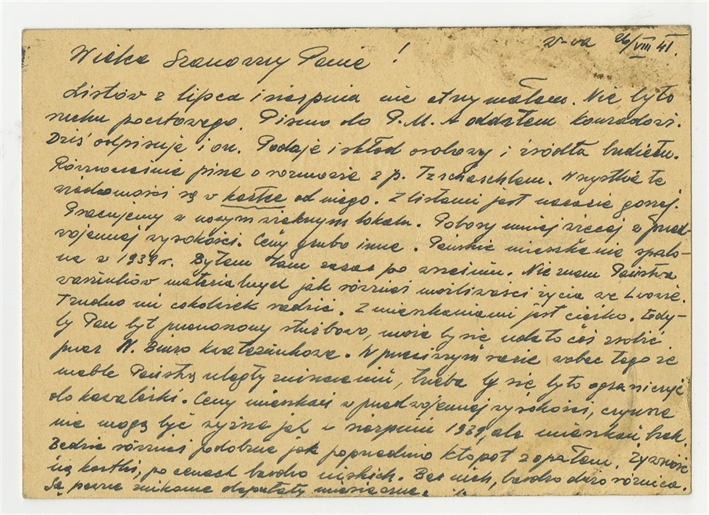 W-wa 26/VIII 41.
Wielce Szanowny Panie !
Listów z lipca i sierpnia nie otrzymałem. Nie było
ruchu pocztowego. Pismo do P.M.A oddałem Konradowi.
Dziś odpisuje i on. Podaje i skład osobowy i źródła budżetu.
Równocześnie pisze o rozmowie z p. Tzschaschlem. Wszystkie te
wiadomości są w kartce od niego. Z listami jest raczej gorzej.
Pracujemy w nowym pięknym lokalu. Pobory mniej więcej w przed
wojennej wysokości. Ceny grubo inne. Pańskie mieszkanie spalo-
ne w 1939 r. Byłem tam zaraz po wrześniu. Nie znam Państwa
warunków materialnych jak również możliwości życia we Lwowie.
Trudno mi cokolwiek radzić. Z mieszkaniami jest ciężko. Gdy-
by Pan był przenoszony służbowo, może by się udało coś zrobić
przez N. Biuro Kwaterunkowe. W przeciwnym razie wobec tego że
meble Pańskie uległy zniszczeniu, trzeba by się było ograniczyć
do kawalerki. Ceny mieszkań w przedwojennej wysokości, czynsze
nie mogą być wyższe jak w sierpniu 1939, ale mieszkań brak.
Będzie również podobnie jak poprzednio kłopot z opałem. Żywność
na kartki, po cenach bardzo niskich. Bez nich, bardzo duża różnica.
Są pewne znikome deputaty miesięczne.